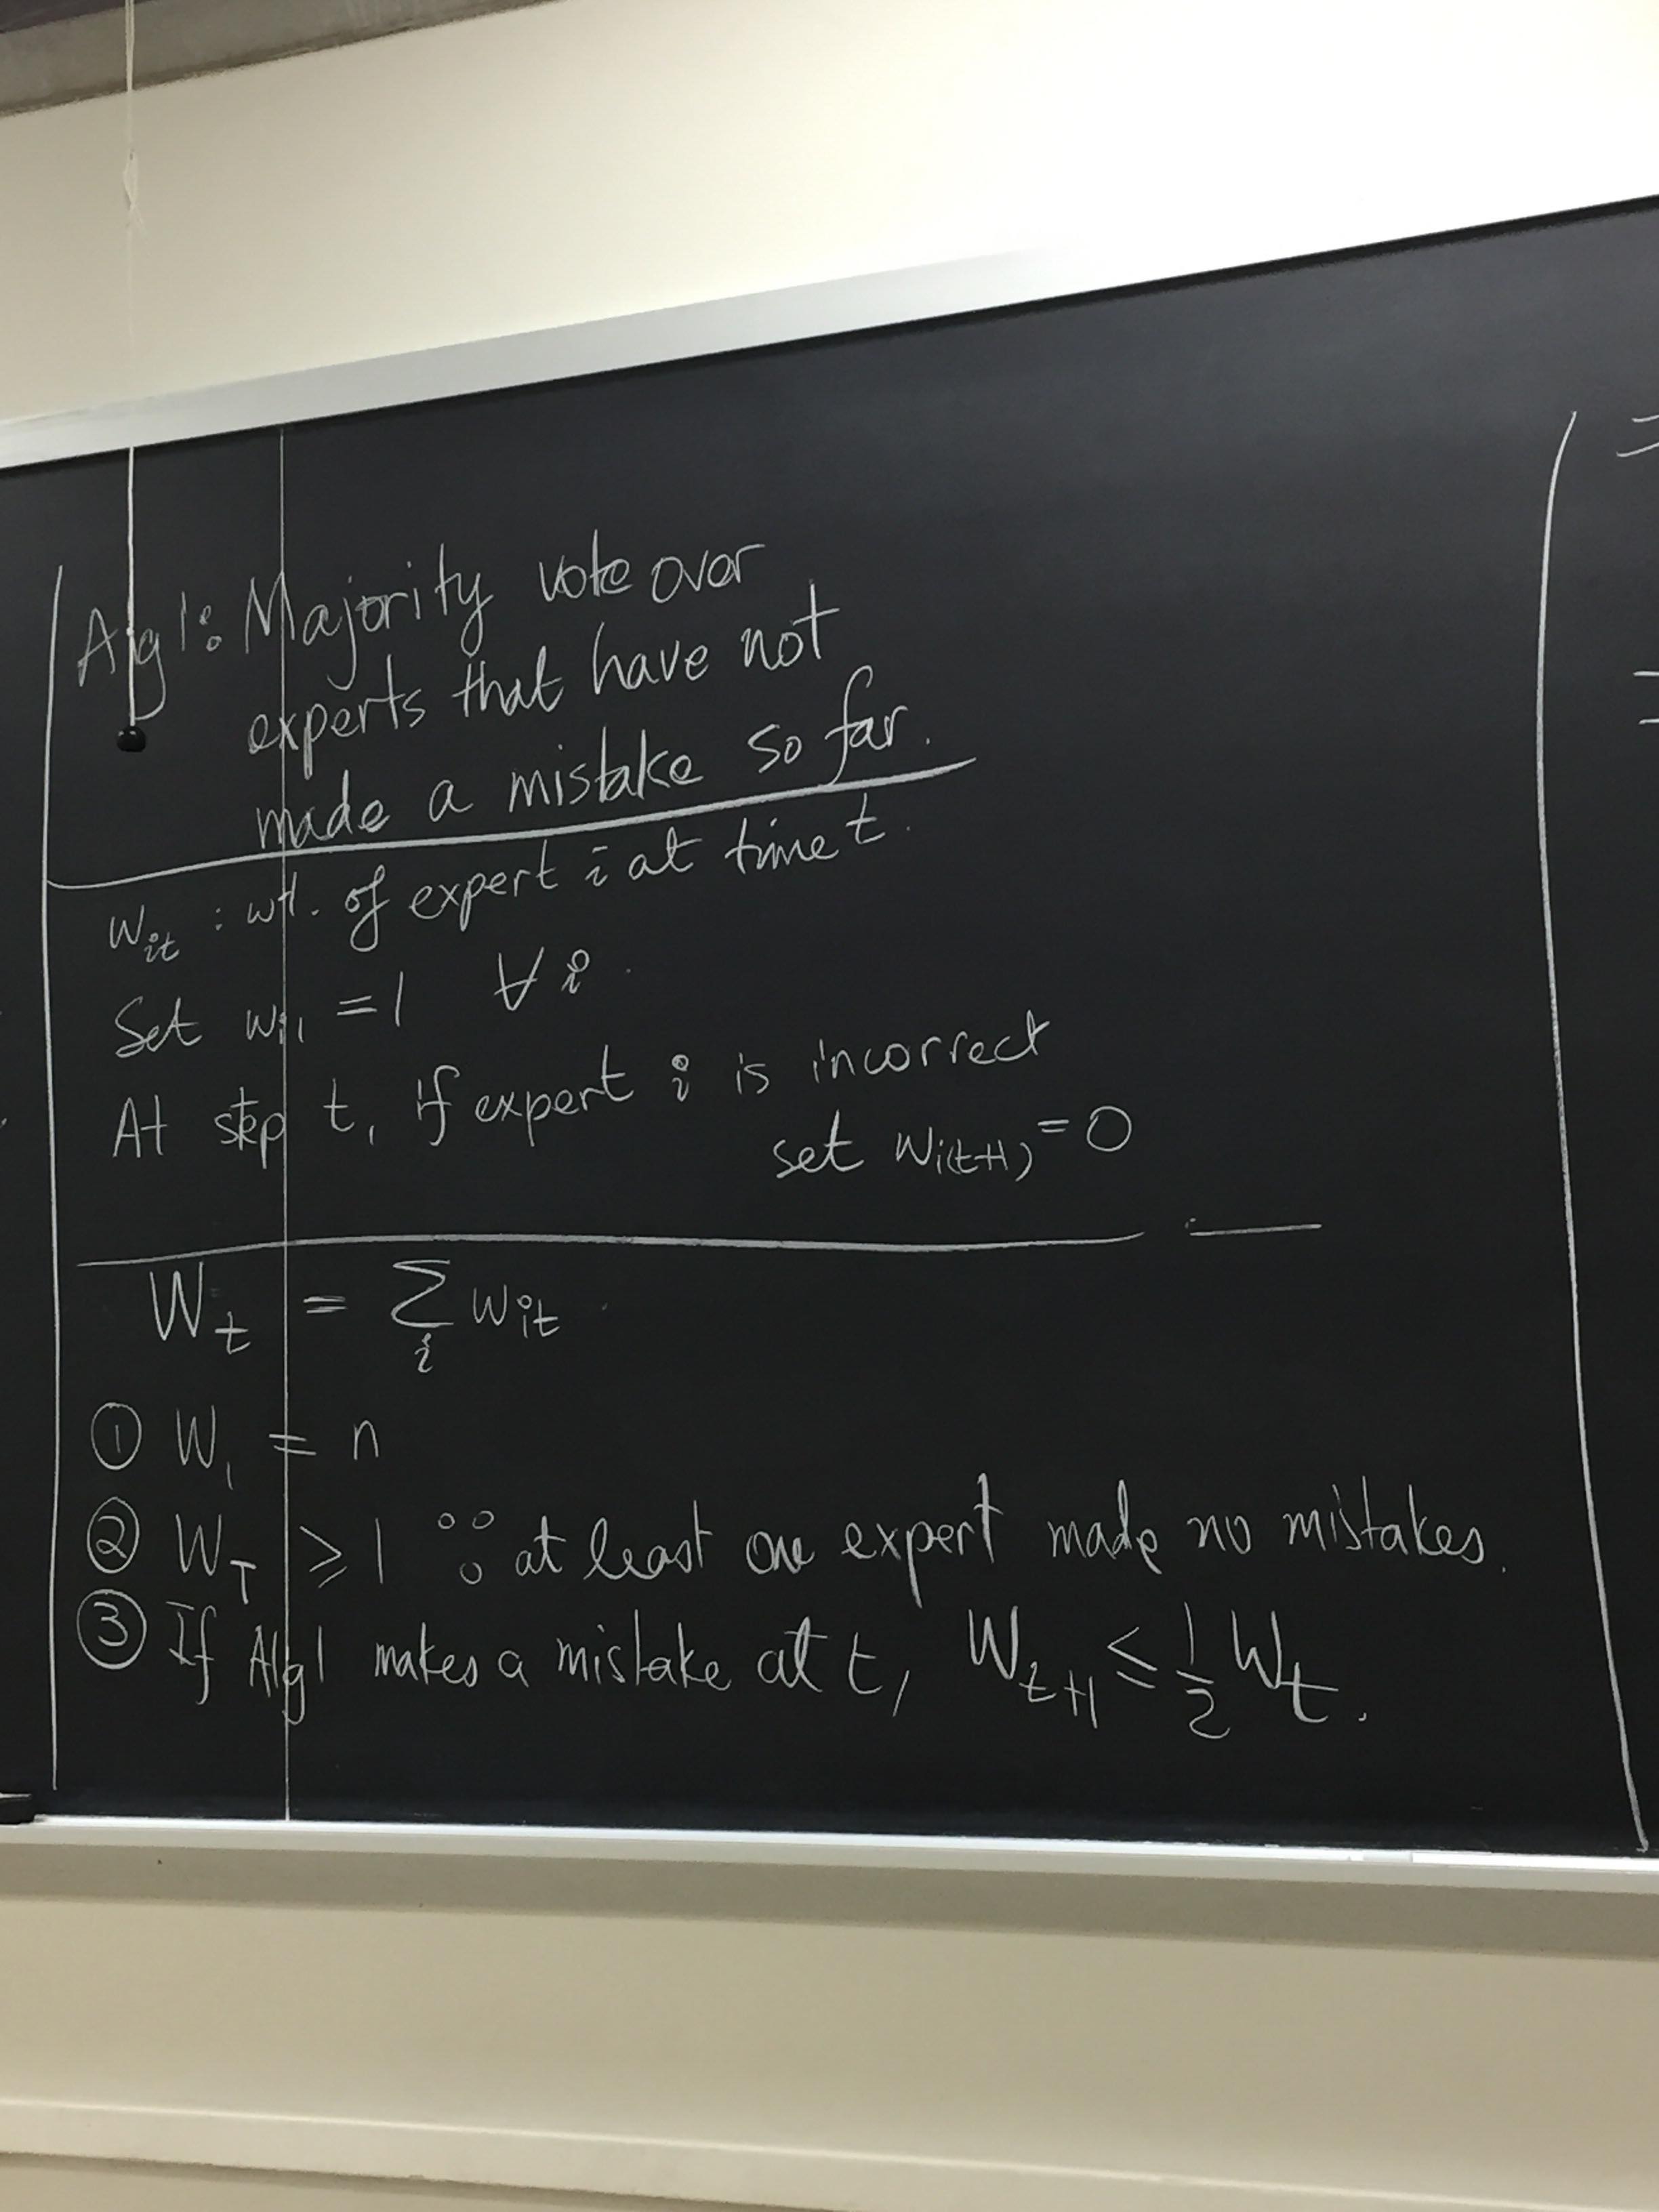 Alg 1: Majority vote over
experts that have not
made a mistake so far.
w_it : wt. of expert i at time t.
Set w_i1 = 1 ∀ i.
At step t, if expert i is incorrect
set w_i(t+1) = 0
W_t = Σ_i w_it
① W_1 = n
② W_T ≥ 1 ∵ at least one expert made no mistakes.
③ If Alg 1 makes a mistake at t, W_t+1 ≤ 1/2 W_t.